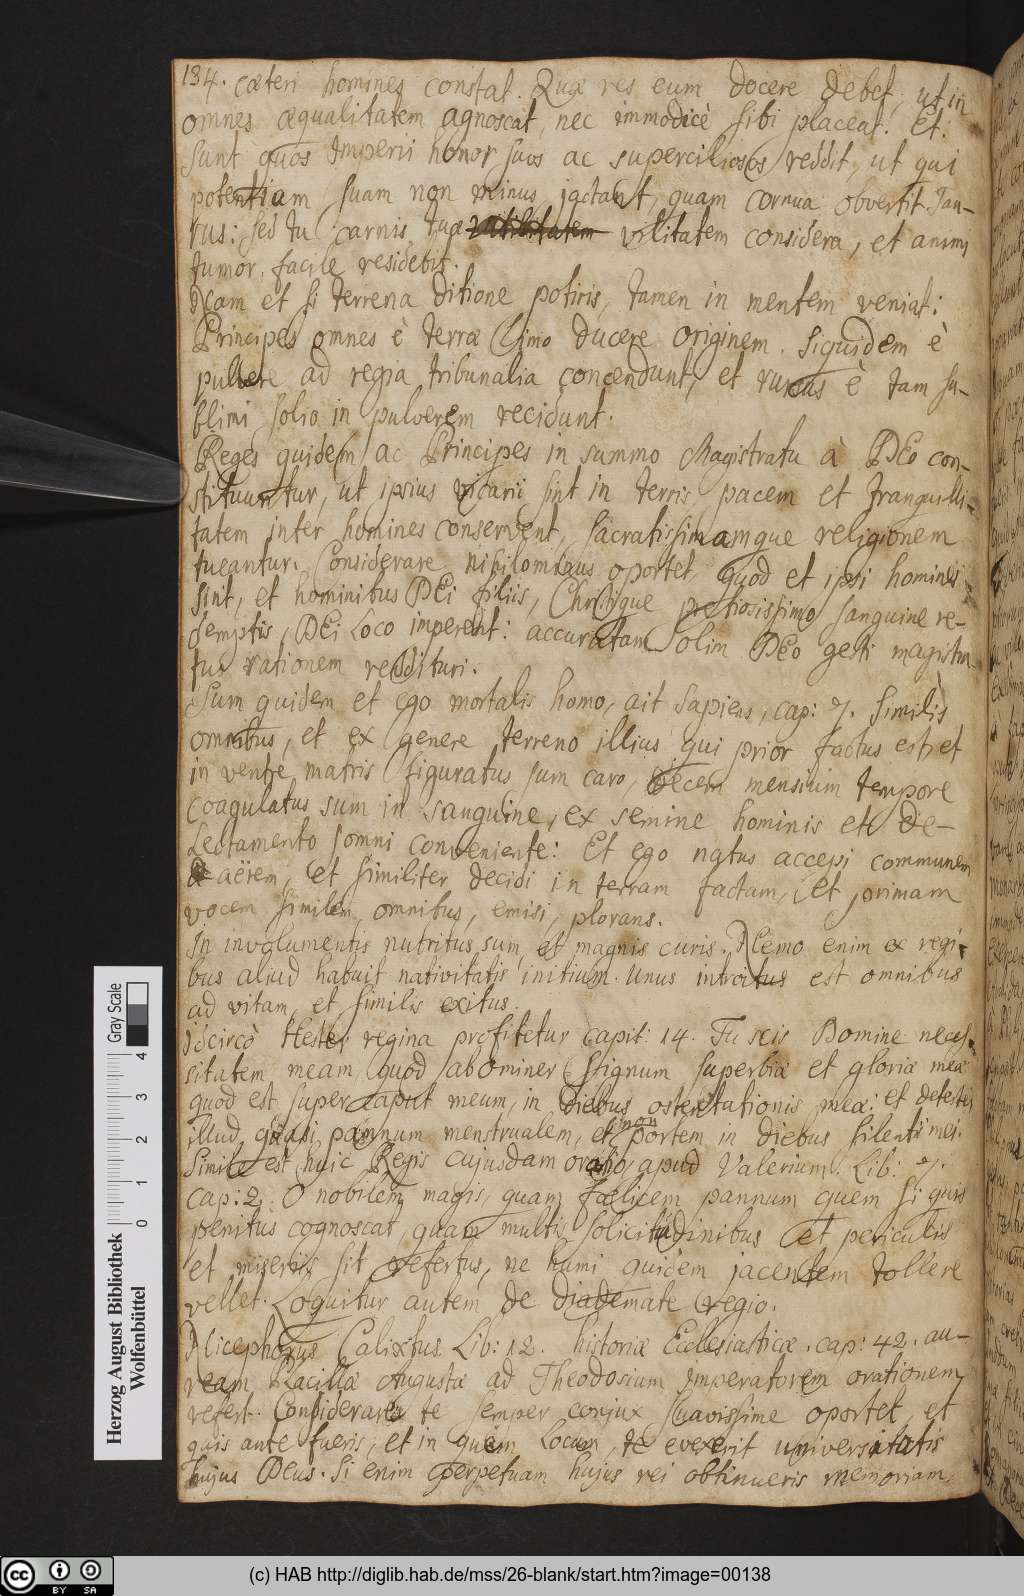 134. cæteri homines constat. Quæ res eum docere debet, ut in
omnes æqualitatem agnoscat, nec immodicè sibi placeat. Et.
sunt quos Imperii honor suos ac superciliosos reddit, ut qui
potentiam suam non minus jactant, quam cornua obvertit Tau-
rus: sed tu carnis tuæ vilitatem considera, et animi
tumor, facile residebit.
Nam et si terrena ditione potiris, tamen in mentem veniat:
Principes omnes è terræ limo ducere originem. Siquidem è
pulvere ad regia tribunalia concendunt, et rursus è tam su-
blimi solio in pulverem recidunt.
Reges quidem ac Principes in summo Magistratu à DEo con-
stituuntur, ut ipsius vicarii sint in terris, pacem et tranquilli-
tatem inter homines conservent, sacratissimamque religionem
tueantur. Considerare nihilominus oportet, quod et ipsi homines
sint, et hominibus DEi filiis, Christique pretiosissimo sanguine re-
demptis, DEi Loco imperent: accuratam olim DEo gesti magistra
tus rationem reddituri.
Sum quidem et ego mortalis homo, ait Sapiens, cap: 7. Similis
omnibus, et ex genere terreno illius qui prior factus est, et
in ventre matris figuratus sum caro, decem mensium tempore
coagulatus sum in sanguine, ex semine hominis et de-
Lectamento somni conveniente: Et ego natus accepi communem
aërem, et similiter decidi in terram factam, et primam
vocem similem omnibus, emisi, plorans.
In involumentis nutritus sum, et magnis curis. Nemo enim ex regi-
bus aliud habuit nativitatis initium. Unus introitus est omnibus
ad vitam, et similis exitus.
Idcircò Hester regina profitetur capit: 14. Tu scis Domine neces-
sitatem meam, quod abominer signum superbiæ et gloriæ meæ
quod est super caput meum, in diebus ostentationis meæ: et detester
illud quasi pannum menstrualem, et non portem in diebus silentii mei.
Simile est huic Regis cujusdam oratio, apud Valerium. Lib: 7.
cap: 2. O nobilem magis, quam fœlicem pannum quem si quis
penitus cognoscat, quam multis solicitudinibus et periculis
et miseriis sit refertus, ne humi quidem jacentem tollere
vellet. Loquitur autem de diademate regio.
Nicephorus Calixtus Lib: 12. historiæ Ecclesiasticæ. cap: 42. au-
ream Placillæ Augustæ ad Theodosium Imperatorem orationem
refert. Considerare te semper conjux suavissime oportet, et
quis ante fueris, et in quem Locum, te evexerit universitatis
hujus Deus. Si enim perpetuam hujus rei obtinueris memoriam,
Herzog August Bibliothek
Wolfenbüttel
0 1 2 3 4 Gray Scale
cc BY SA
(c) HAB http://diglib.hab.de/mss/26-blank/start.htm?image=00138